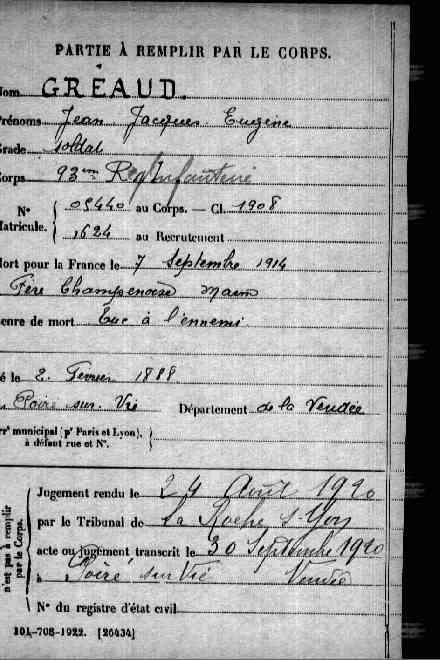 PARTIE À REMPLIR PAR LE CORPS.
Nom GRÉAUD.
Prénoms Jean Jacques Eugène
Grade soldat
Corps 93ème Reg Infanterie
N° 05440 au Corps. — Cl. 1908
Matricule. 1624 au Recrutement
Mort pour la France le 7 Septembre 1914
Fère Champenoise Marne
Genre de mort Tué à l'ennemi
Né le 2. Fevrier 1888
Poiré sur. Vie Département de la Vendée
Arrt municipal (pr Paris et Lyon),
à défaut rue et N°.
n'est pas à remplir par le Corps.
Jugement rendu le 24 Août 1920
par le Tribunal de La Roche s-Yon
acte ou jugement transcrit le 30 Septembre 1920
à Poiré sur Vie Vendée
N° du registre d'état civil
101-708-1922. [26434]